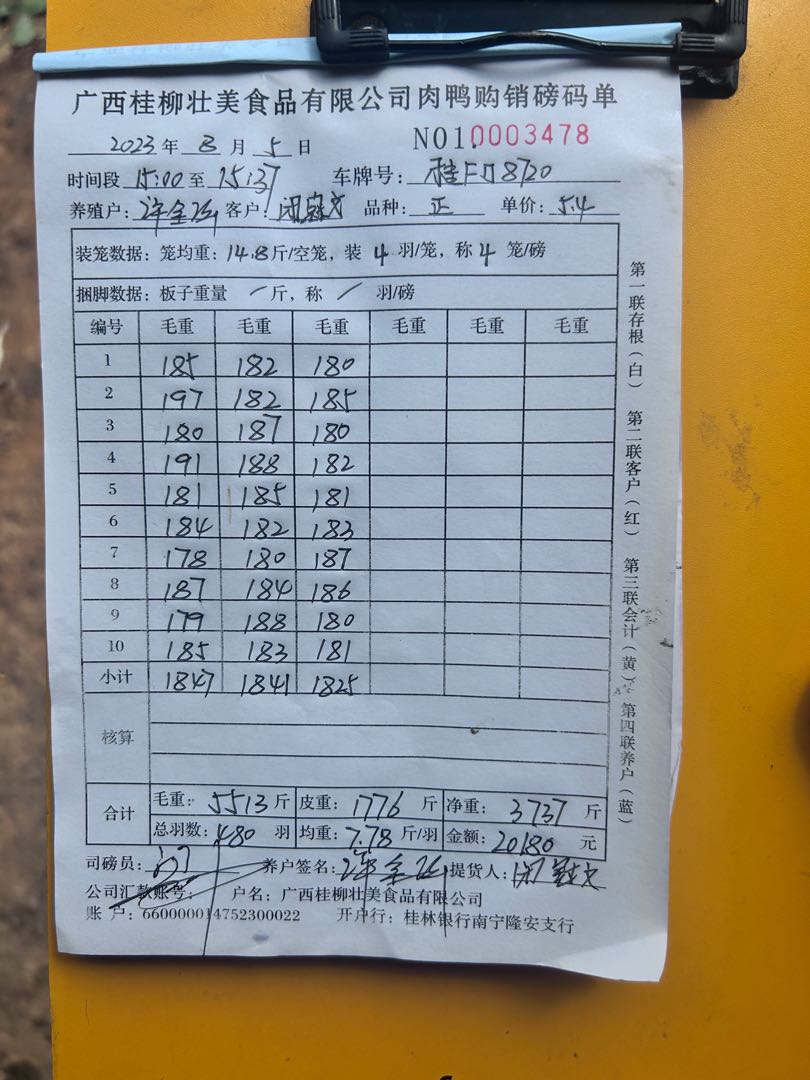 广西桂柳壮美食品有限公司肉鸭购销磅码单
2023年 8 月 5 日 NO1.0003478
时间段 15:00 至 15:37 车牌号: 8720
养殖户: 客户: 品种: 正 单价: 5.4
装笼数据: 笼均重: 14.8 斤/空笼, 装 4 羽/笼, 称 4 笼/磅
捆脚数据: 板子重量 / 斤, 称 / 羽/磅
编号 毛重 毛重 毛重 毛重 毛重 毛重
1 185 182 180
2 197 182 185
3 180 187 180
4 191 188 182
5 181 185 181
6 184 182 183
7 178 180 187
8 187 184 186
9 179 188 180
10 185 183 181
小计 1847 1841 1825
核算
合计 毛重: 5513 斤 皮重: 1776 斤 净重: 3737 斤
总羽数: 480 羽 均重: 7.78 斤/羽 金额: 20180 元
司磅员: 养户签名: 提货人:
公司汇款账号: 户名: 广西桂柳壮美食品有限公司
账 户: 660000014752300022 开户行: 桂林银行南宁隆安支行
第一联存根(白) 第二联客户(红) 第三联会计(黄) 第四联养户(蓝)